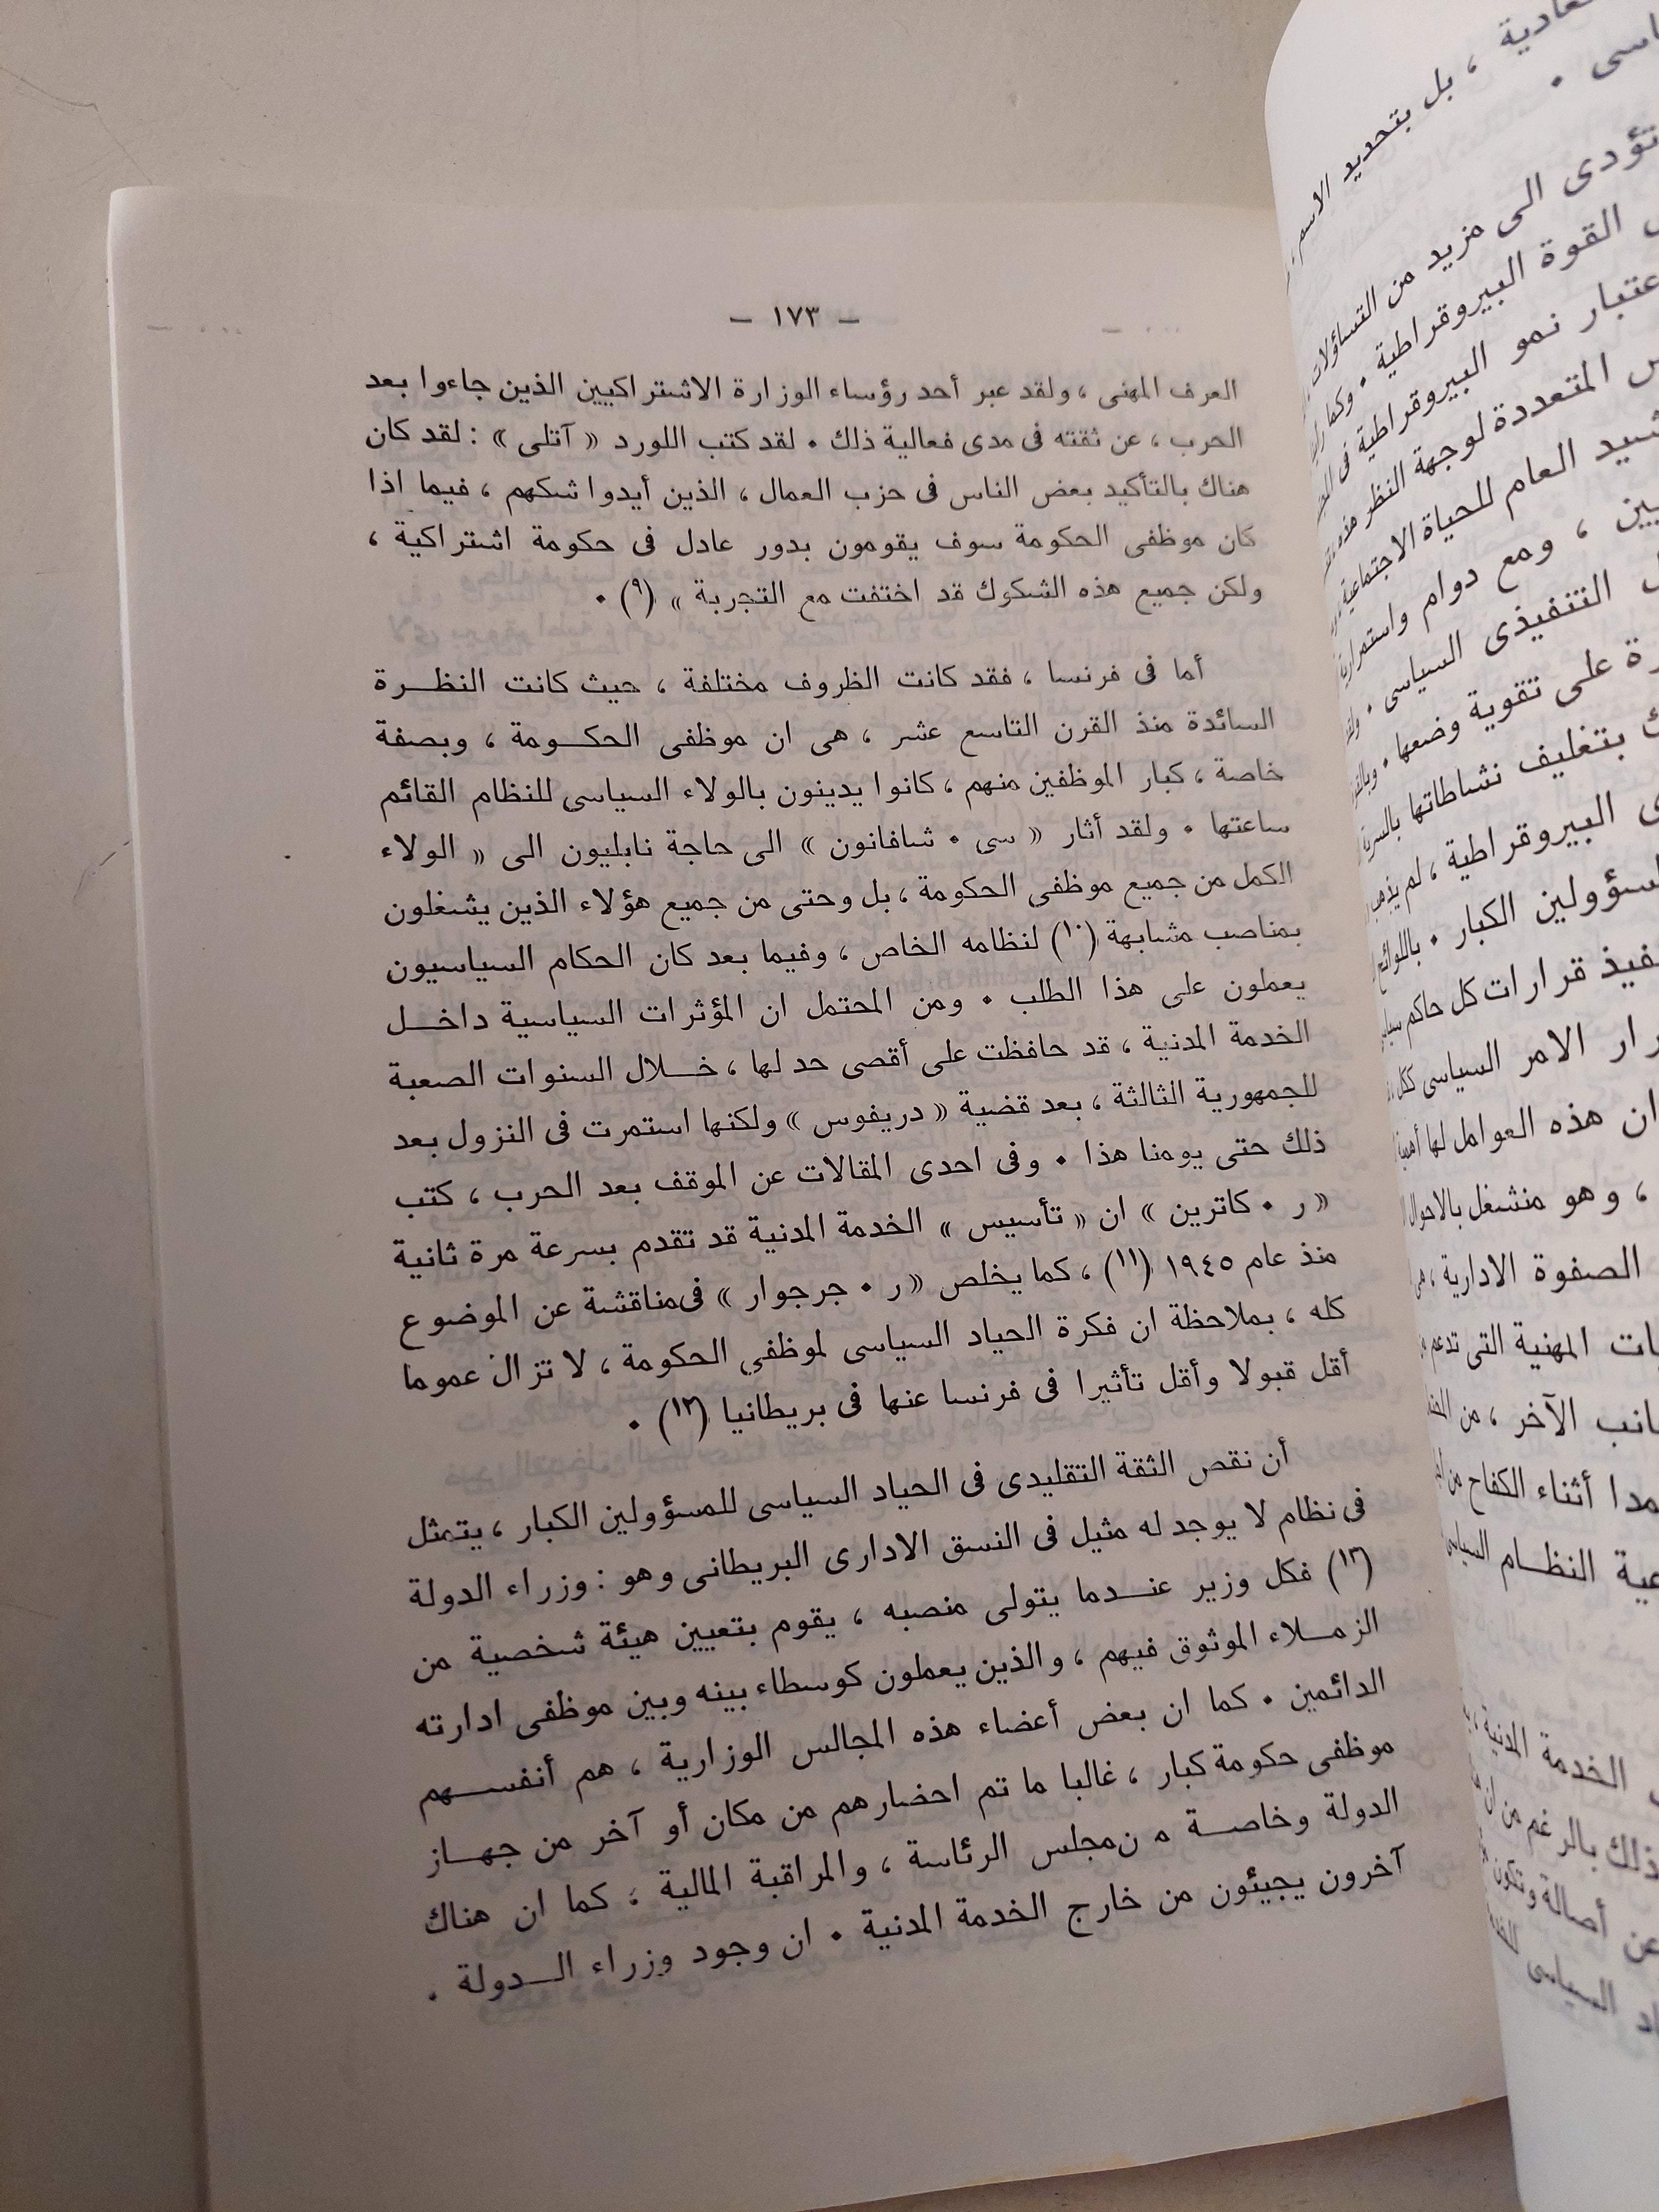 — ١٧٣ —
العرف المهنى ، ولقد عبر أحد رؤساء الوزارة الاشتراكيين الذين جاءوا بعد
الحرب ، عن ثقته فى مدى فعالية ذلك ٠ لقد كتب اللورد « آتلى » : لقد كان
هناك بالتأكيد بعض الناس فى حزب العمال ، الذين أيدوا شكهم ، فيما اذا
كان موظفى الحكومة سوف يقومون بدور عادل فى حكومة اشتراكية ،
ولكن جميع هذه الشكوك قد اختفت مع التجربة » (٩) ٠
أما فى فرنسا ، فقد كانت الظروف مختلفة ، حيث كانت النظــرة
السائدة منذ القرن التاسع عشر ، هى ان موظفى الحكــومة ، وبصفة
خاصة ، كبار الموظفين منهم ، كانوا يدينون بالولاء السياسى للنظام القائم
ساعتها ٠ ولقد أثار « سى ٠ شافانون » الى حاجة نابليون الى « الولاء
الكمل من جميع موظفى الحكومة ، بل وحتى من جميع هؤلاء الذين يشغلون
بمناصب مشابهة (١٠) لنظامه الخاص ، وفيما بعد كان الحكام السياسيون
يعملون على هذا الطلب ٠ ومن المحتمل ان المؤثرات السياسية داخــل
الخدمة المدنية ، قد حافظت على أقصى حد لها ، خــلال السنوات الصعبة
للجمهورية الثالثة ، بعد قضية « دريفوس » ولكنها استمرت فى النزول بعد
ذلك حتى يومنا هذا ٠ وفى احدى المقالات عن الموقف بعد الحرب ، كتب
« ر ٠ كاترين » ان « تأسيس » الخدمة المدنية قد تقدم بسرعة مرة ثانية
منذ عام ١٩٤٥ (١١) ، كما يخلص « ر ٠ جرجوار » فى مناقشة عن الموضوع
كله ، بملاحظة ان فكرة الحياد السياسى لموظفي الحكومة ، لا تزال عموما
أقل قبولا وأقل تأثيرا فى فرنسا عنها فى بريطانيا (١٢) ٠
أن نقص الثقة التقليدى فى الحياد السياسى للمسؤولين الكبار ، يتمثل
فى نظام لا يوجد له مثيل فى النسق الادارى البريطانى وهو : وزراء الدولة
(١٣) فكل وزير عنــدما يتولى منصبه ، يقوم بتعيين هيئة شخصية من
الزمــلاء الموثوق فيهم ، والذين يعملون كوسطاء بينه وبين موظفى ادارته
الدائمين ٠ كما ان بعض أعضاء هذه المجالس الوزارية ، هم أنفســهم
موظفى حكومة كبار ، غالبا ما تم احضارهم من مكان أو آخر من جهــاز
الدولة وخاصــة م ن مجلس الرئاسة ، والمراقبة المالية ، كما ان هناك
آخرون يجيئون من خارج الخدمة المدنية ٠ ان وجود وزراء الــدولة ٠
، بل بتحديد
تؤدى الى مزيد من التساؤلات
القوة البيروقراطية ٠ وكما
نمو البيروقراطية فى
المتعددة لوجهة النظر
العام للحياة الاجتماعية
، ومع دوام
التنفيذى السياسى ٠
على تقوية وضعها ٠
بتغليف نشاطاتها
البيروقراطية ، لم
الكبار ٠
قرارات كل حاكم
الامر السياسى
ان هذه العوامل لها
، وهو منشغل
الصفوة الادارية ،
المهنية التى تدعم
الآخر ، من
أثناء الكفاح من
النظــام
الخدمة المدنية
بالرغم من ان
عن أصالة
السياسى